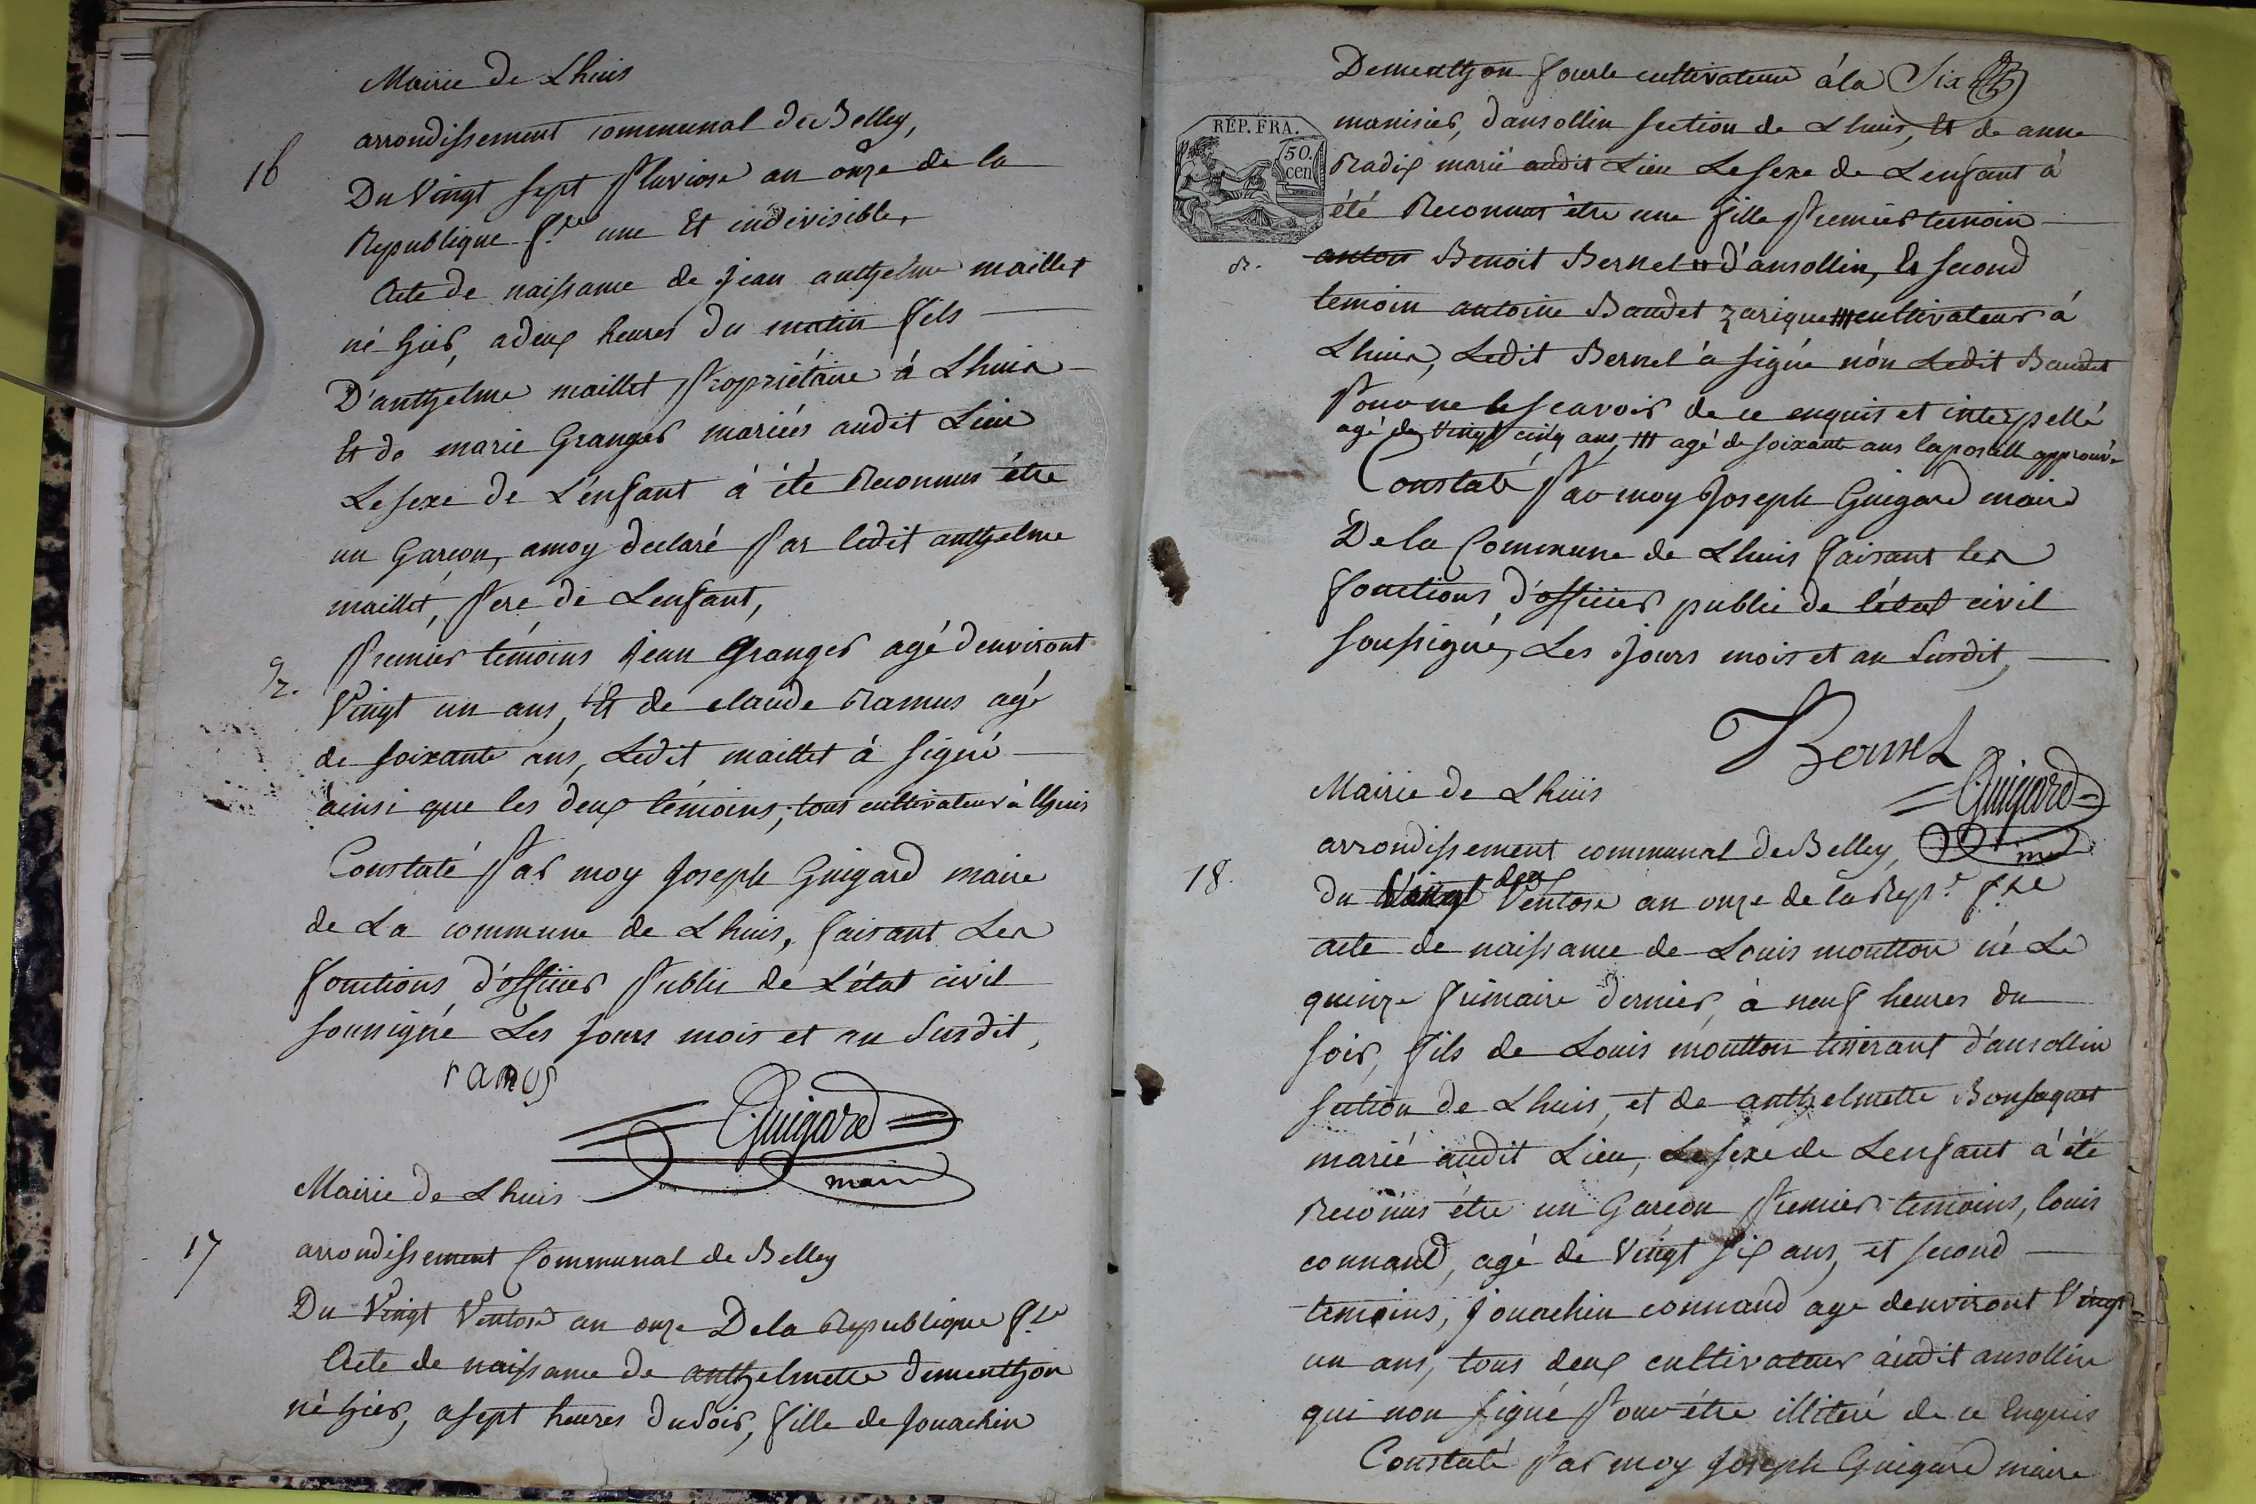 Mairie de Lhuis
arrondissement communal de Belley,
16
Du Vingt sept Pluviose an onze de la
Republique f.se une Et indivisible,
Acte de naissance de jean anthelme maillet
né hier, a deux heures du matin fils
D'anthelme maillet Propriétaire á Lhuis
Et de marie Granger mariés audit Lieu
Le sexe de L'enfant à été Reconnus étre
un Garcon, a moy declaré Par ledit anthelme
maillet, Pere de Lenfant,
Premier témoins jean Granger agé denviront
g.
Vingt un ans, Et de claude Ramus agé
de soixante ans, Ledit maillet à signé
ainsi que les deux témoins, tous cultivateur à lhuis
Constaté Par moy Joseph Guigard maire
de La commune de Lhuis, faisant Les
fonctions d'officier Public de L'état civil
soussigné Les jours mois et an Susdit,
ramus
Guigard
maire
Mairie de Lhuis
17
arrondissement Communal de Belley
Du Vingt Ventose an onze De la Republique f.se
Acte de naissance de anthelmette dementhon
né hier, a sept heures Du soir, fille de jouachin
Dementhon cultivateur á la Six
REP. FRA.
50.
cen
d'ansollin section de Lhuis, Et de anne
Radix marié audit Lieu Le sexe de Lenfant à
été Reconnus étre une fille Premier temoin
anton Benoit Bernel d'ansollin, le second
temoin antoine Baudet cultivateur á
Lhuis, Ledit Bernel à signé nón Ledit Baudet
Pour ne le scavoir de ce enquis et interpellé
agé de Vingt cinq ans, agé de soixante ans lapostille approuvé
Constaté Par moy Joseph Guigard maire
De la Commune de Lhuis faisant les
fonctions d'officier public de l'état civil
soussigné, Les jours mois et an susdit,
Bernel
Guigard
Mairie de Lhuis
arrondissement communal de Belley,
18.
deux
du Vingt Ventose an onze de la Rep.e f.se
acte de naissance de Louis moutton né Le
quinze frimaire dernier, à neuf heures du
soir, fils de Louis moutton tisserant d'ansollin
section de Lhuis, et de anthelmette Bonsaquet
marié audit Lieu, Le sexe de Lenfant à été
Reconus étre un Garcon Premier temoins, louis
connand, agé de Vingt six ans, et second
temoins, jouachin connand age denviront Vingt
un ans, tous deux cultivateur áudit ansollin
qui non signé Pour étre illiteré de ce Enquis
Constaté Par moy Joseph Guigard maire